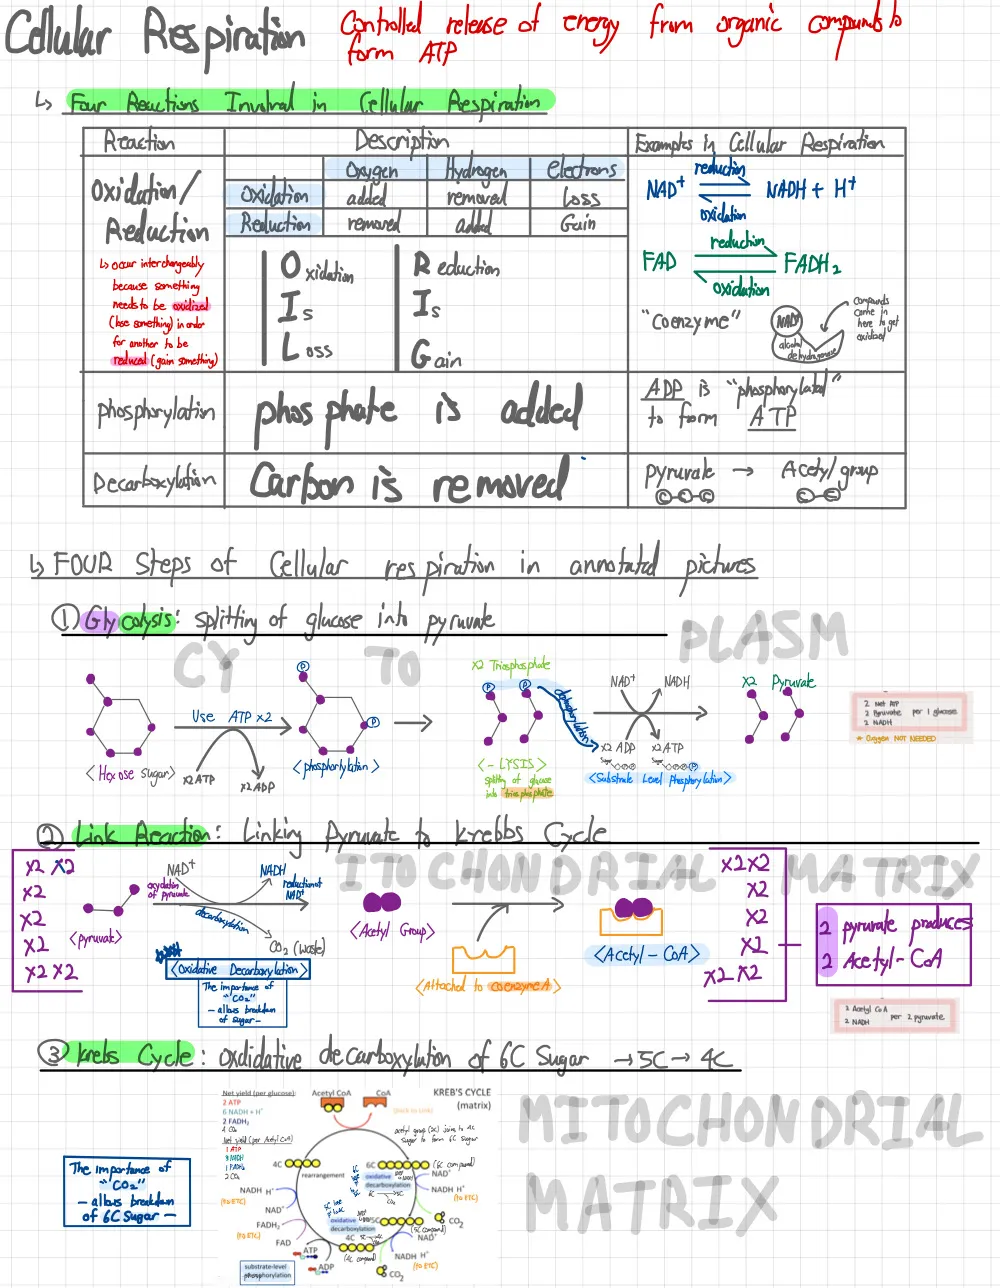 Cellular Respiration
Controlled release of energy from organic compounds to
form ATP
↳ Four Reactions Involved in Cellular Respiration
Reaction
Description
Examples in Cellular Respiration
Oxidation/
Reduction
↳ occur interchangeably
because something
needs to be oxidized
(lose something) in order
for another to be
reduced (gain something)
Oxygen Hydrogen electrons
Oxidation added removed Loss
Reduction removed added Gain
Oxidation
Is
Loss
Reduction
Is
Gain
NAD+ reduction NADH + H+
oxidation
FAD reduction FADH2
oxidation
"Coenzyme"
NAD+
alcohol
dehydrogenase
compounds
come in
here to get
oxidized
phosphorylation
phosphate is added
ADP is "phosphorylated"
to form ATP
Decarboxylation
Carbon is removed
pyruvate → Acetyl group
C-C-C C-C
↳ FOUR Steps of Cellular respiration in annotated pictures
① Glycolysis: splitting of glucose into pyruvate
CYTOPLASM
<Hexose sugar>
Use ATP x2
x2 ATP
x2 ADP
P
P
<phosphorylation>
x2 Triosphosphate
P P
<-LYSIS>
splitting of glucose
into triosphosphate
NAD+
NADH
x2 ADP
x2 ATP
<Substrate Level Phosphorylation>
x2 Pyruvate
2 Net ATP
2 Pyruvate per 1 glucose
2 NADH
* Oxygen NOT NEEDED
② Link Reaction: Linking Pyruvate to Krebbs Cycle
ITOCHONDRIAL MATRIX
x2 x2
x2
x2
x2
x2 x2
<pyruvate>
oxydation
of pyruvate
NAD+
NADH
reduction of
NAD+
decarboxylation
CO2 (waste)
<Oxidative Decarboxylation>
The importance of
"CO2"
- allows breakdown
of sugar -
<Acetyl Group>
<Attached to coenzyme A>
<Acetyl-CoA>
x2 x2
x2
x2
x2
x2 x2
2 pyruvate produces
2 Acetyl-CoA
2 Acetyl CoA
2 NADH
per 2 pyruvate
③ Krebs Cycle: Oxdidative decarboxylation of 6C Sugar → 5C → 4C
MITOCHONDRIAL
MATRIX
The importance of
"CO2"
- allows breakdown
of 6C Sugar -
Net yield (per glucose):
2 ATP
6 NADH + H+
2 FADH2
4 CO2
Net yield (per Acetyl CoA)
1 ATP
3 NADH
1 FADH2
2 CO2
Acetyl CoA
CoA
KREB'S CYCLE
(matrix)
(back to Link)
acetyl group (2C) joins to 4C
sugar to form 6C sugar
4C
rearrangement
6C
(6C compound)
oxidative
decarboxylation
NAD+
NADH H+
(to ETC)
CO2
5C
(5C compound)
oxidative
decarboxylation
NAD+
NADH H+
(to ETC)
CO2
4C
(4C compound)
ATP
ADP
substrate-level
phosphorylation
FAD
FADH2
(to ETC)
NAD+
NADH H+
(to ETC)